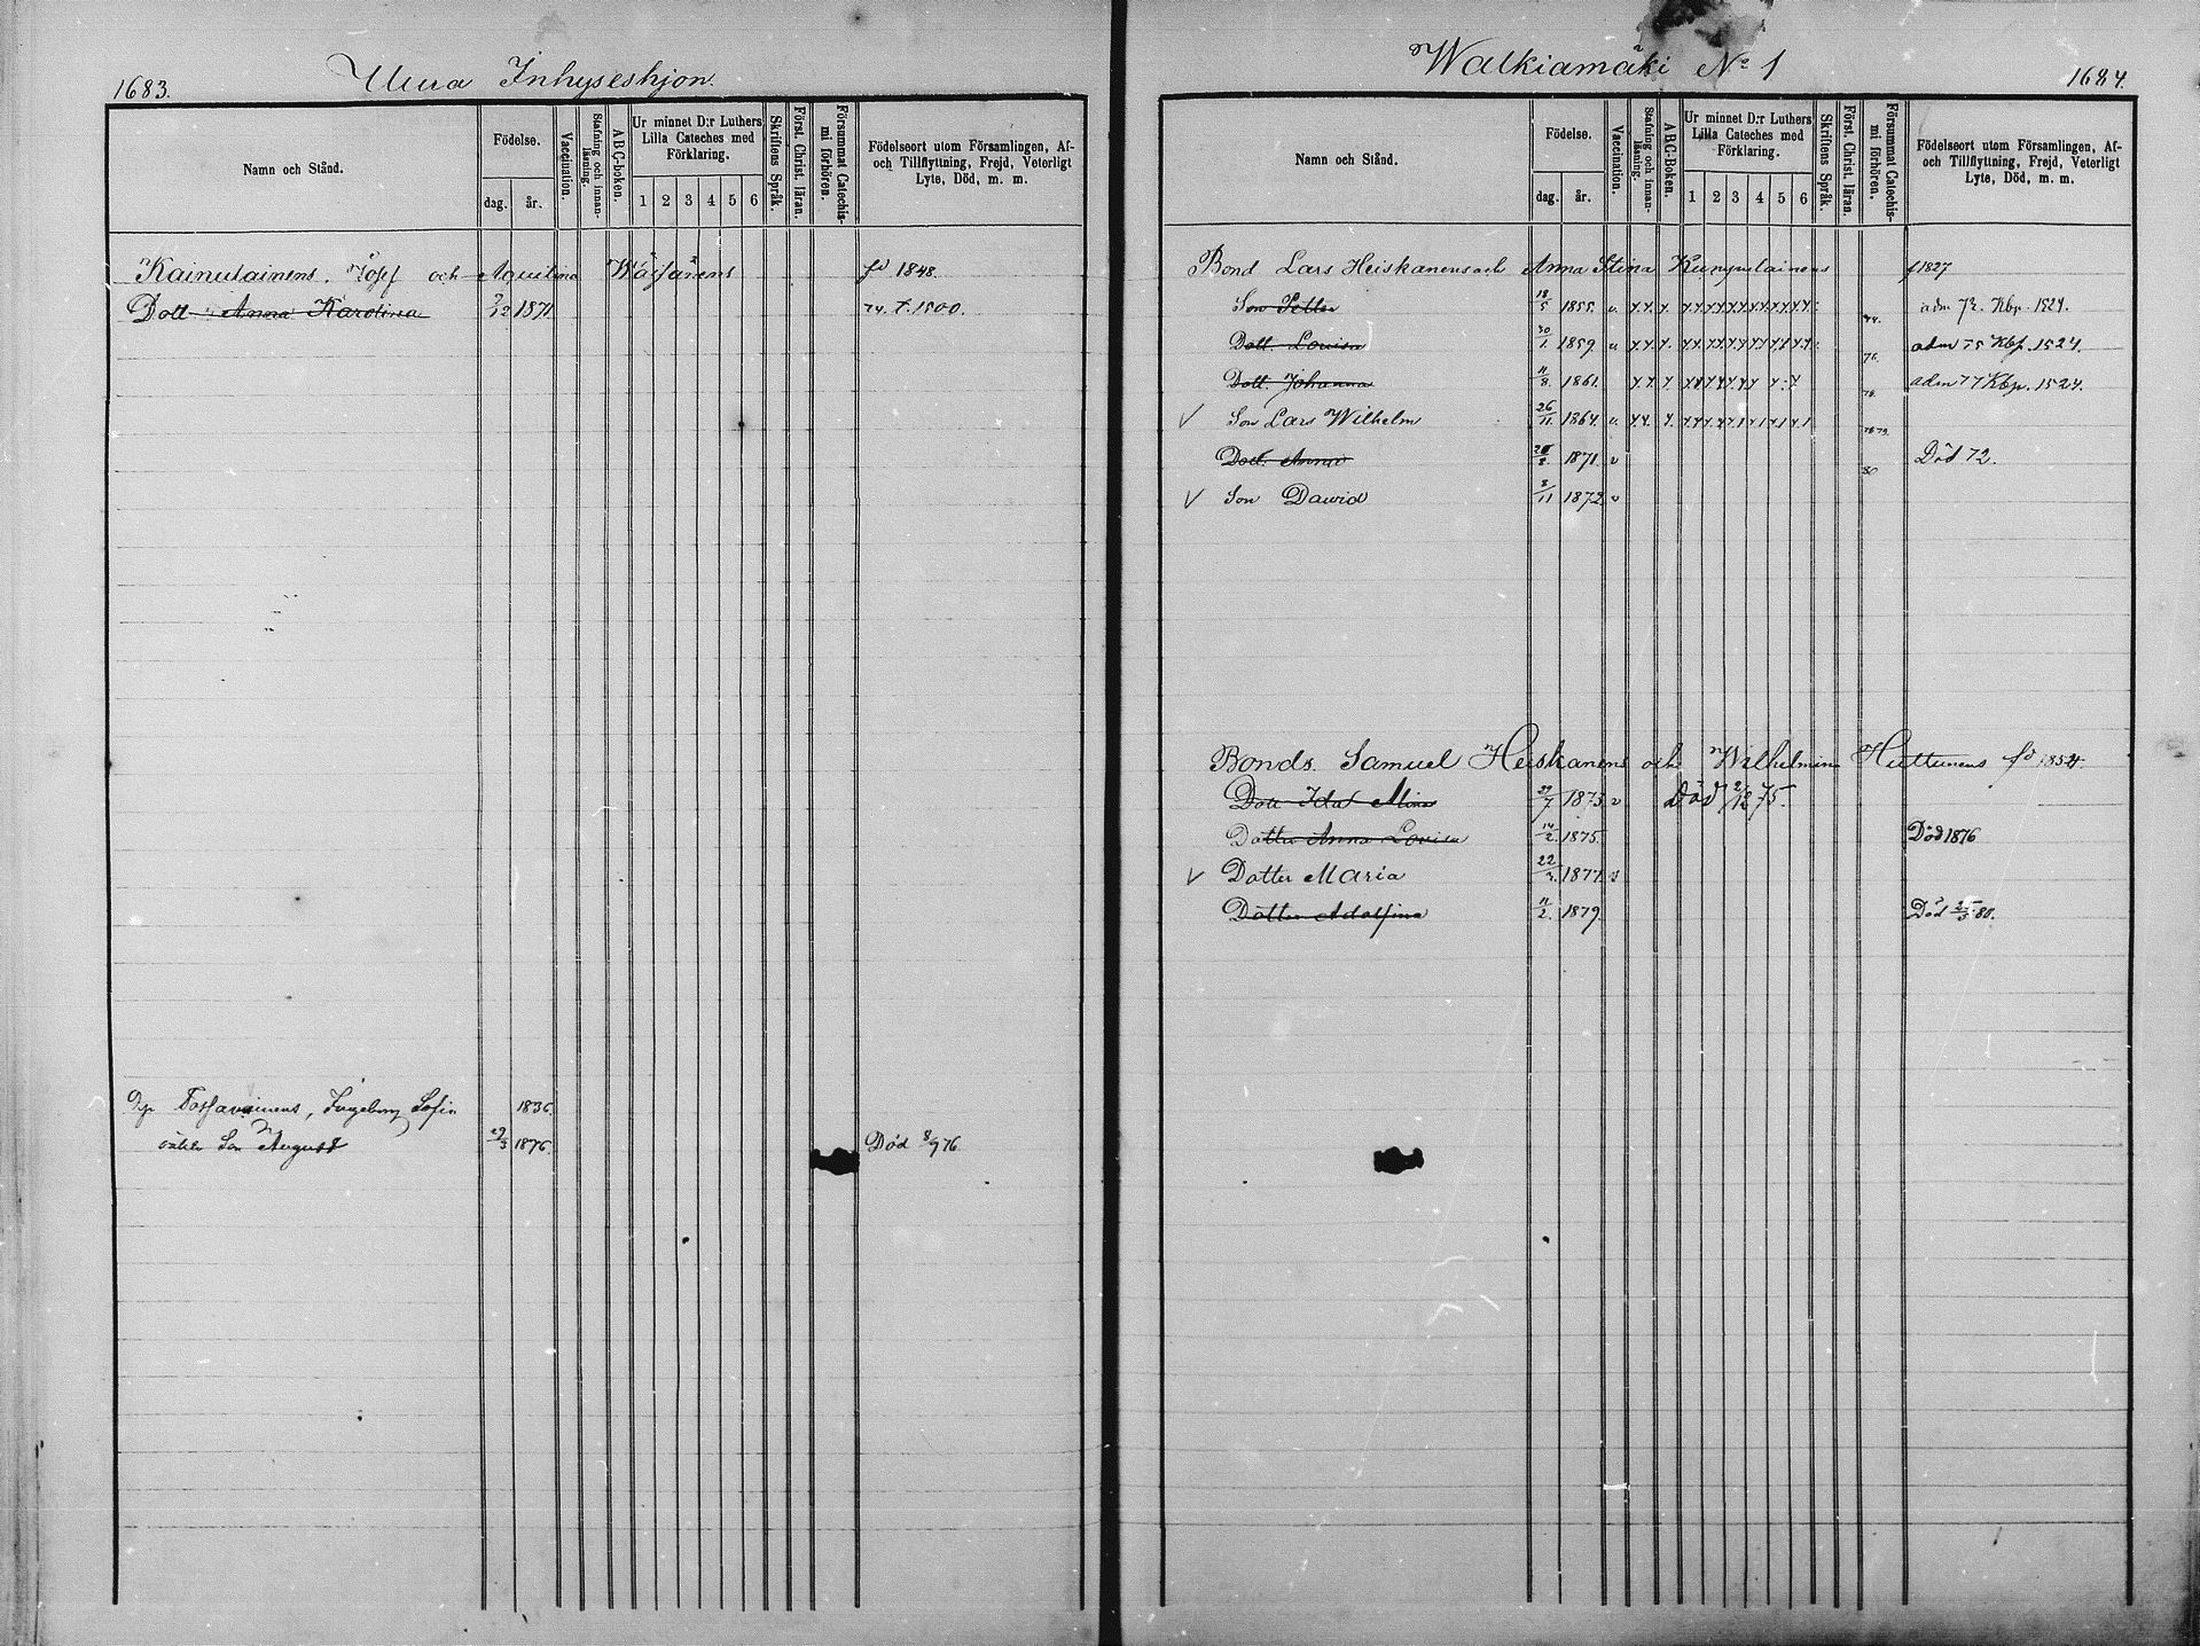 1683.
Uura Inhyseshjon.
Namn och Stånd.
Födelse.
dag.
år.
Vaccination.
Stafning och innan-läsning.
ABC-boken.
Ur minnet D:r Luthers Lilla Cateches med Förklaring.
1 2 3 4 5 6
Skriftens Språk.
Först. Christ. läran.
Försummat Catechis-mi förhören.
Födelseort utom Församlingen, Af- och Tillflyttning, Frejd, Veterligt Lyte, Död, m. m.
Kainulainens. Josef och Aquilina fd 1848.
Dott Anna Karolina 1871 74. T. 1500.
Ingeborg Sofia 1836.
Son August 29/3 1876. Död 8/9 76
Walkiamäki No 1
1684.
Namn och Stånd.
Födelse.
dag.
år.
Vaccination.
Stafning och innan-läsning.
ABC-boken.
Ur minnet D:r Luthers Lilla Cateches med Förklaring.
1 2 3 4 5 6
Skriftens Språk.
Först. Christ. läran.
Försummat Catechis-mi förhören.
Födelseort utom Församlingen, Af- och Tillflyttning, Frejd, Veterligt Lyte, Död, m. m.
Bond Lars Heiskanens och Anna Stina f 1827
Son Petter 18/5 1855. v. adm 72. Kbp. 1524.
Dott. Lovisa 30/1 1859. v adm 75 Kbp. 1524.
Dott. Johanna 11/8 1861. adm 77 Kbp. 1524.
√ Son Lars Wilhelm 26/11. 1864. v.
Dott. Anna 1871. v Död 72.
√ Son Dawid 8/11 1872 v
Bonds. Samuel Heiskanens och Wilhelmina Huttunens fd 1854.
Dott Ida Mina 1873 v Död 2/12 75.
Dotter Anna Lovisa 14/2. 1875. Död 1876
√ Dotter Maria 1877 v
Dotter Adolfina 11/2. 1879. Död 25/3 80.